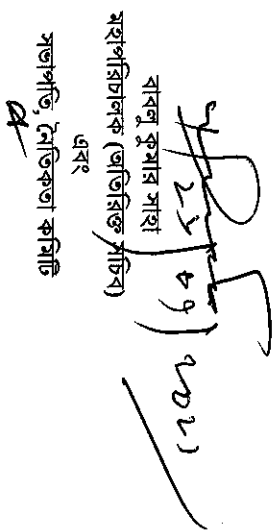 বাবলু কুমার সাহা
মহাপরিচালক (অতিরিক্ত সচিব)
এবং
সভাপতি, নৈতিকতা কমিটি